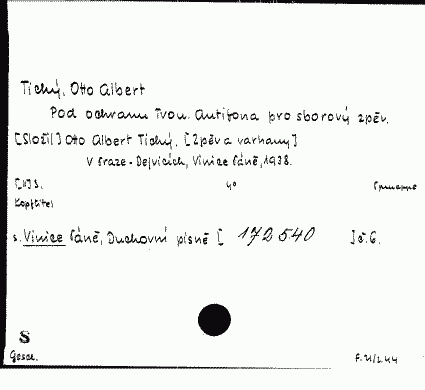 Tichý, Otto Albert
Pod ochranu Tvou. Antifona pro sborový zpěv.
[Složil] Otto Albert Tichý. [Zpěv a varhany]
V Praze-Dejvicích, Vinice Páně, 1938.
S. 4°
Kopftitel
s. Vinice Páně, Duchovní písně [ 172540 ] č. 6.
S
Gesch.